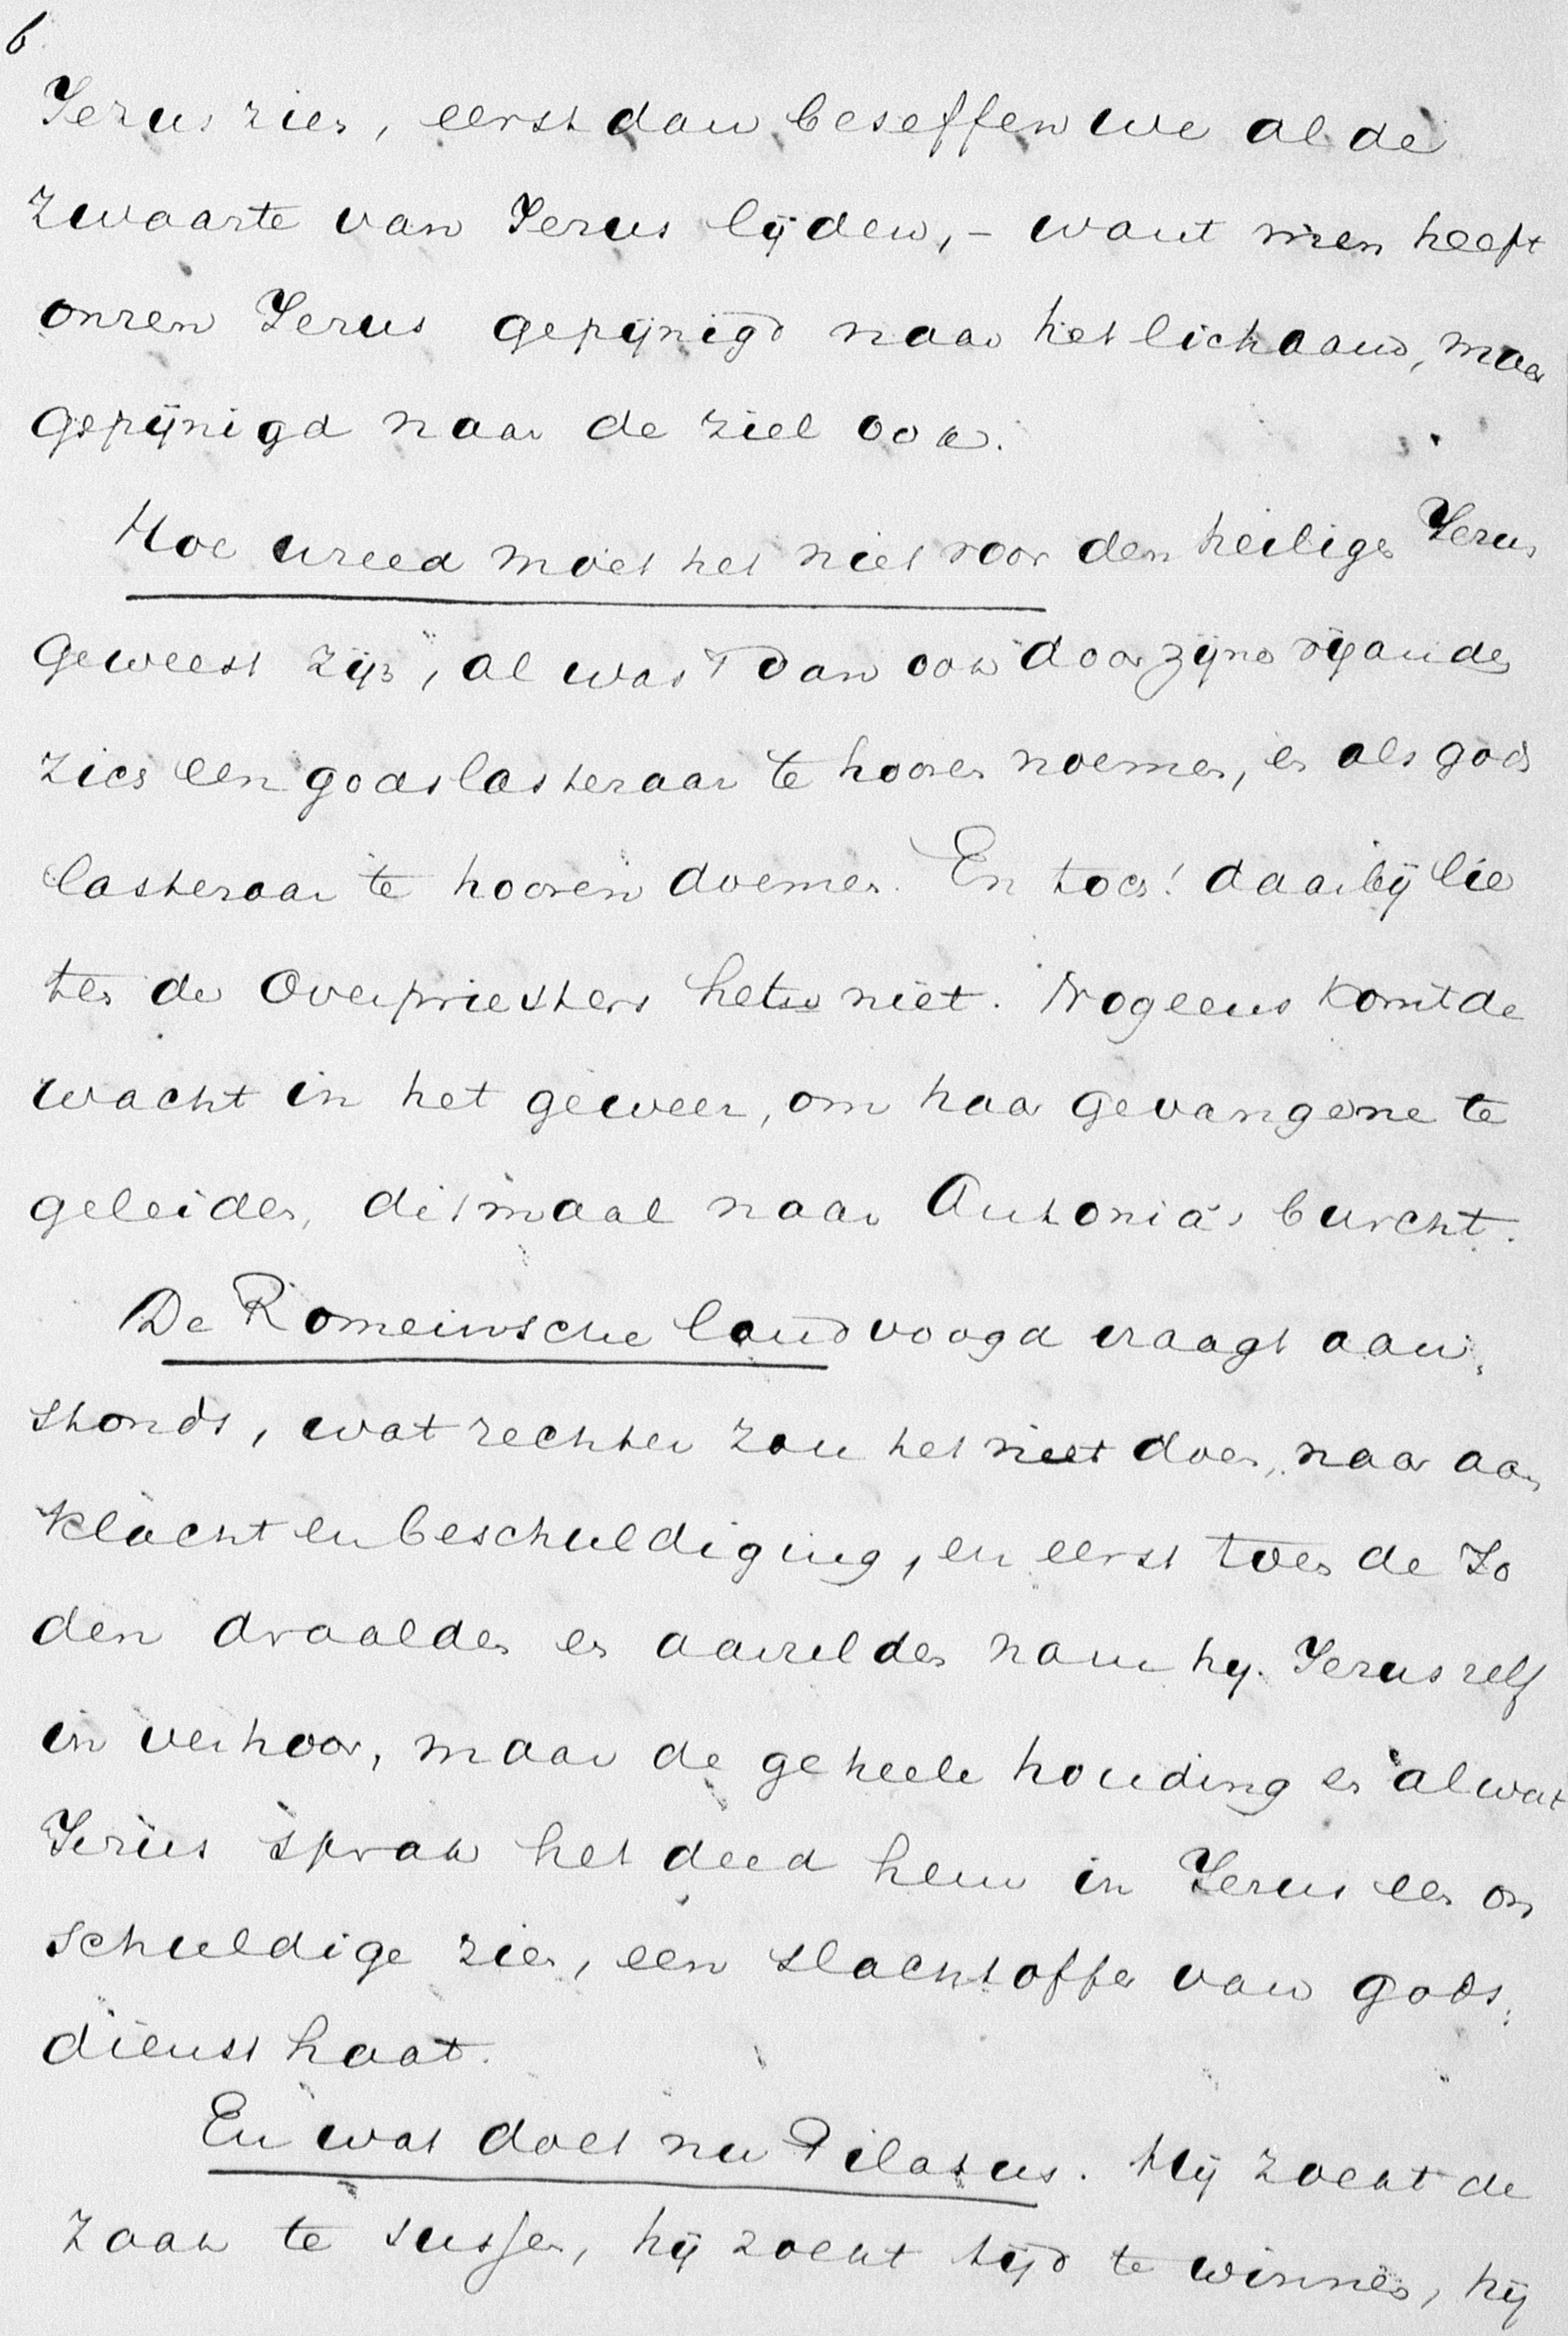 6
Jezus zien, eerst dan beseffen we al de
zwaarte van Jezus lijden, – want men heeft
onzen Jezus gepijnigd naar het lichaam, maar
gepijnigd naar de ziel ook.
Hoe wreed moet het niet voor den heiligen Jezus
geweest zijn, al was 't dan ook door zijne vijanden
zich een godslasteraar te hooren noemen, en als gods
lasteraar te hooren doemen. En toch! daarbij lie
ten de Overpriesters het niet. Nogeens komt de
wacht in het geweer, om haar gevangene te
geleiden, ditmaal naar Antonia's burcht.
De Romeinsche landvoogd vraagt aan-
stonds, wat rechter zou het niet doen, naar aan
klacht en beschuldiging, en eerst toen de Jo
den draalden en aarzelden nam hij Jezus zelf
in verhoor, maar de geheele houding en al wat
Jezus sprak het deed hem in Jezus een on
schuldige zien, een slachtoffer van gods-
diensthaat.
En wat doet nu Pilatus. Hij zoekt de
zaak te sussen, hij zoekt tijd te winnen, hij